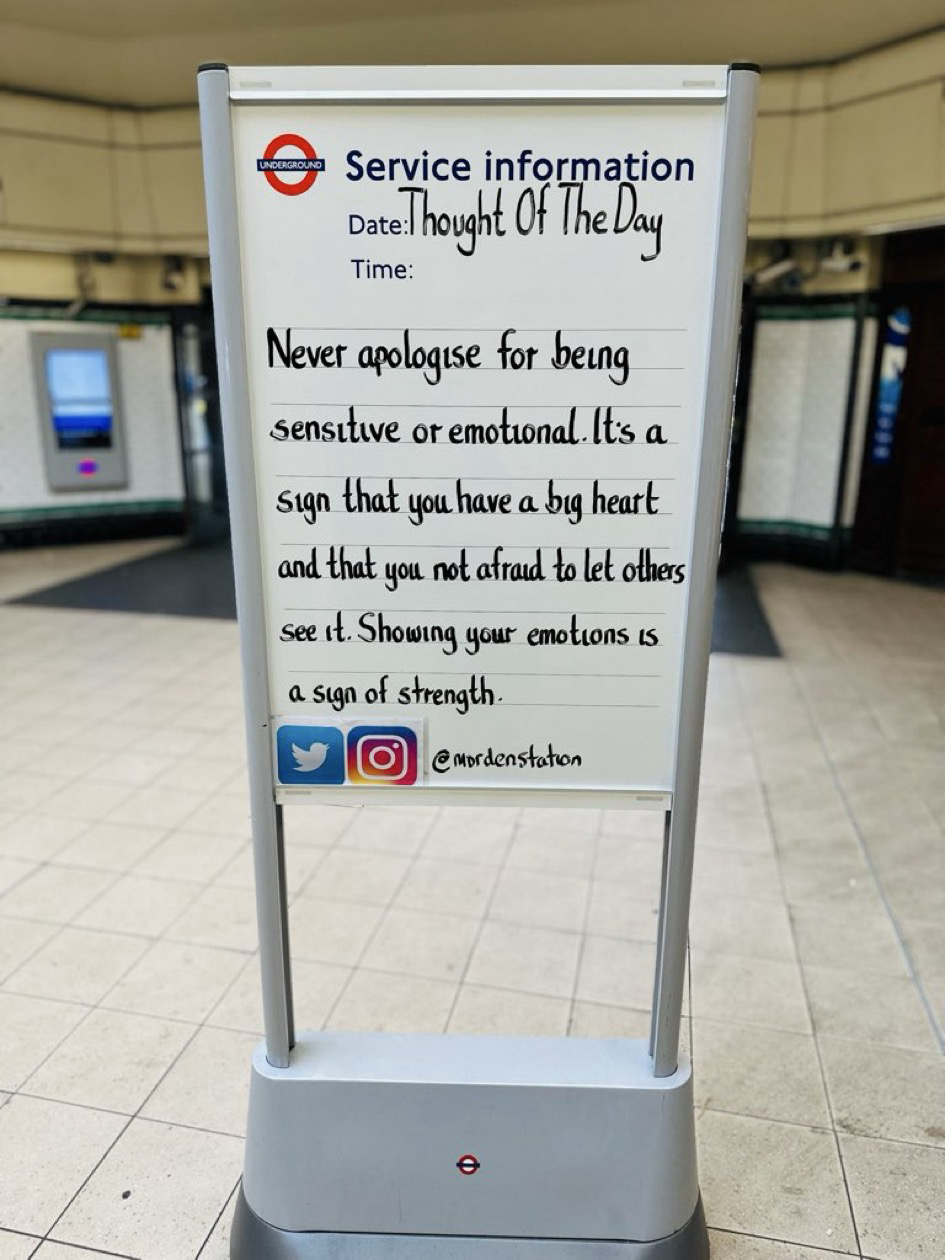 UNDERGROUND
Service information
Date: Thought Of The Day
Time:
Never apologise for being
sensitive or emotional. It's a
sign that you have a big heart
and that you not afraid to let others
see it. Showing your emotions is
a sign of strength.
@mordenstation